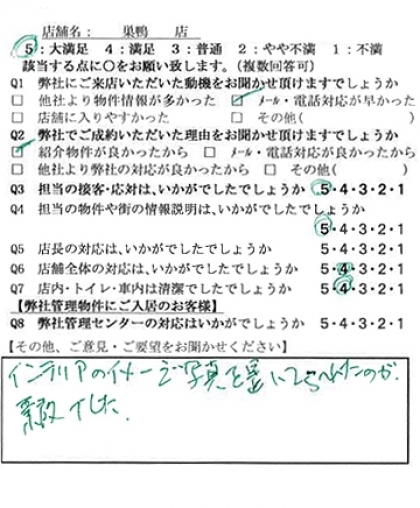 店舗名： 巣鴨 店
5：大満足 4：満足 3：普通 2：やや不満 1：不満
該当する点に○をお願い致します。（複数回答可）
Q1 弊社にご来店いただいた動機をお聞かせ頂けますでしょうか
□ 他社より物件情報が多かった □ メール・電話対応が早かった
□ 店舗に入りやすかった □ その他( )
Q2 弊社でご成約いただいた理由をお聞かせ頂けますでしょうか
□ 紹介物件が良かったから □ メール・電話対応が良かったから
□ 他社より弊社の対応が良かったから □ その他( )
Q3 担当の接客・応対は、いかがでしたでしょうか 5・4・3・2・1
Q4 担当の物件や街の情報説明は、いかがでしたでしょうか
5・4・3・2・1
Q5 店長の対応は、いかがでしたでしょうか 5・4・3・2・1
Q6 店舗全体の対応は、いかがでしたでしょうか 5・4・3・2・1
Q7 店内・トイレ・車内は清潔でしたでしょうか 5・4・3・2・1
【弊社管理物件にご入居のお客様】
Q8 弊社管理センターの対応はいかがでしょうか 5・4・3・2・1
【その他、ご意見・ご要望をお聞かせください】
インテリアのイメージ写真を置いておられたのが、
素敵でした.